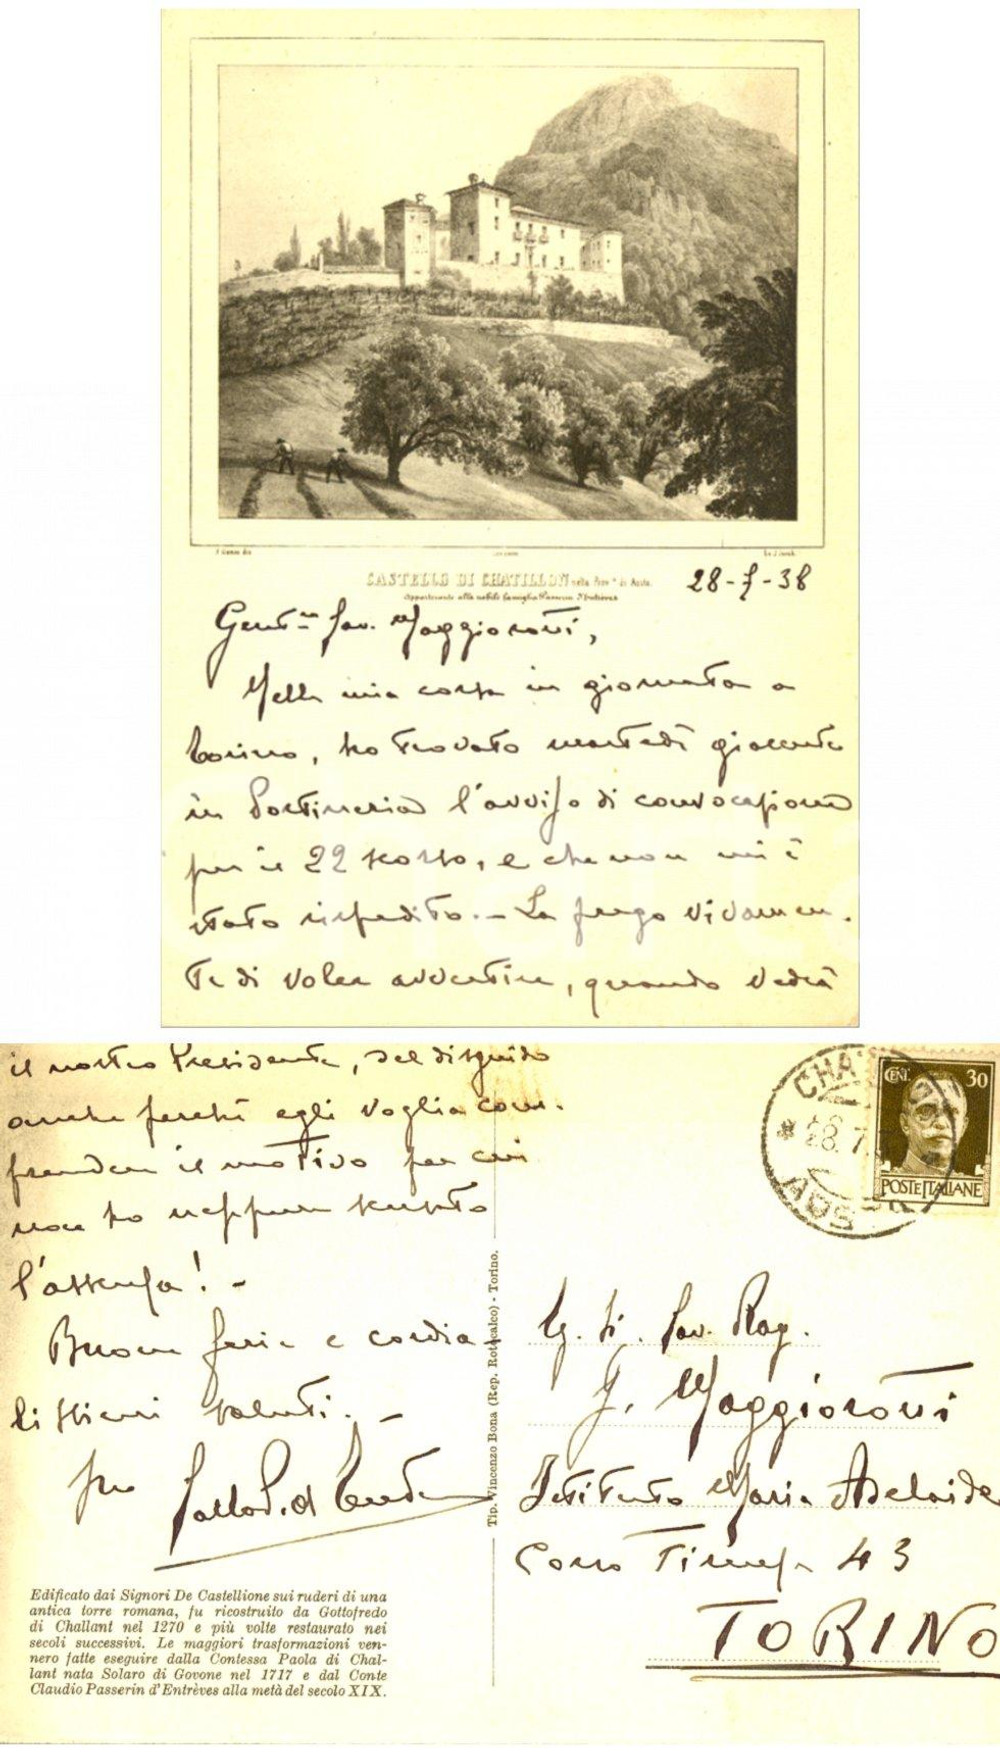 CASTELLO DI CHATILLON nella Prov.ª di Aosta.
Appartenente alla nobile famiglia Passerin d'Entrèves
28-7-38
Gent.mo Cav. Maggiorotti,
Nella mia corsa in giornata a
Torino, ho trovato martedì giacente
in Portineria l'avviso di convocazione
per il 22 scorso, e che non mi è
stato rispedito. - La prego vivamen-
te di voler avvertire, quando vedrà
il nostro Presidente, del disguido
anche perché egli voglia com-
prendere il motivo per cui
non ho neppure scusato
l'assenza! -
Buone ferie e cordia-
lissimi saluti. -
CHATILLON
28.7
AOSTA
CENT. 30
POSTE ITALIANE
Tip. Vincenzo Bona (Rep. Rotocalco) - Torino.
Cav. Rag.
Maggiorotti
Istituto Maria Adelaide
Corso Firenze 43
TORINO
Edificato dai Signori De Castellione sui ruderi di una
antica torre romana, fu ricostruito da Gottofredo
di Challant nel 1270 e più volte restaurato nei
secoli successivi. Le maggiori trasformazioni ven-
nero fatte eseguire dalla Contessa Paola di Chal-
lant nata Solaro di Govone nel 1717 e dal Conte
Claudio Passerin d'Entrèves alla metà del secolo XIX.